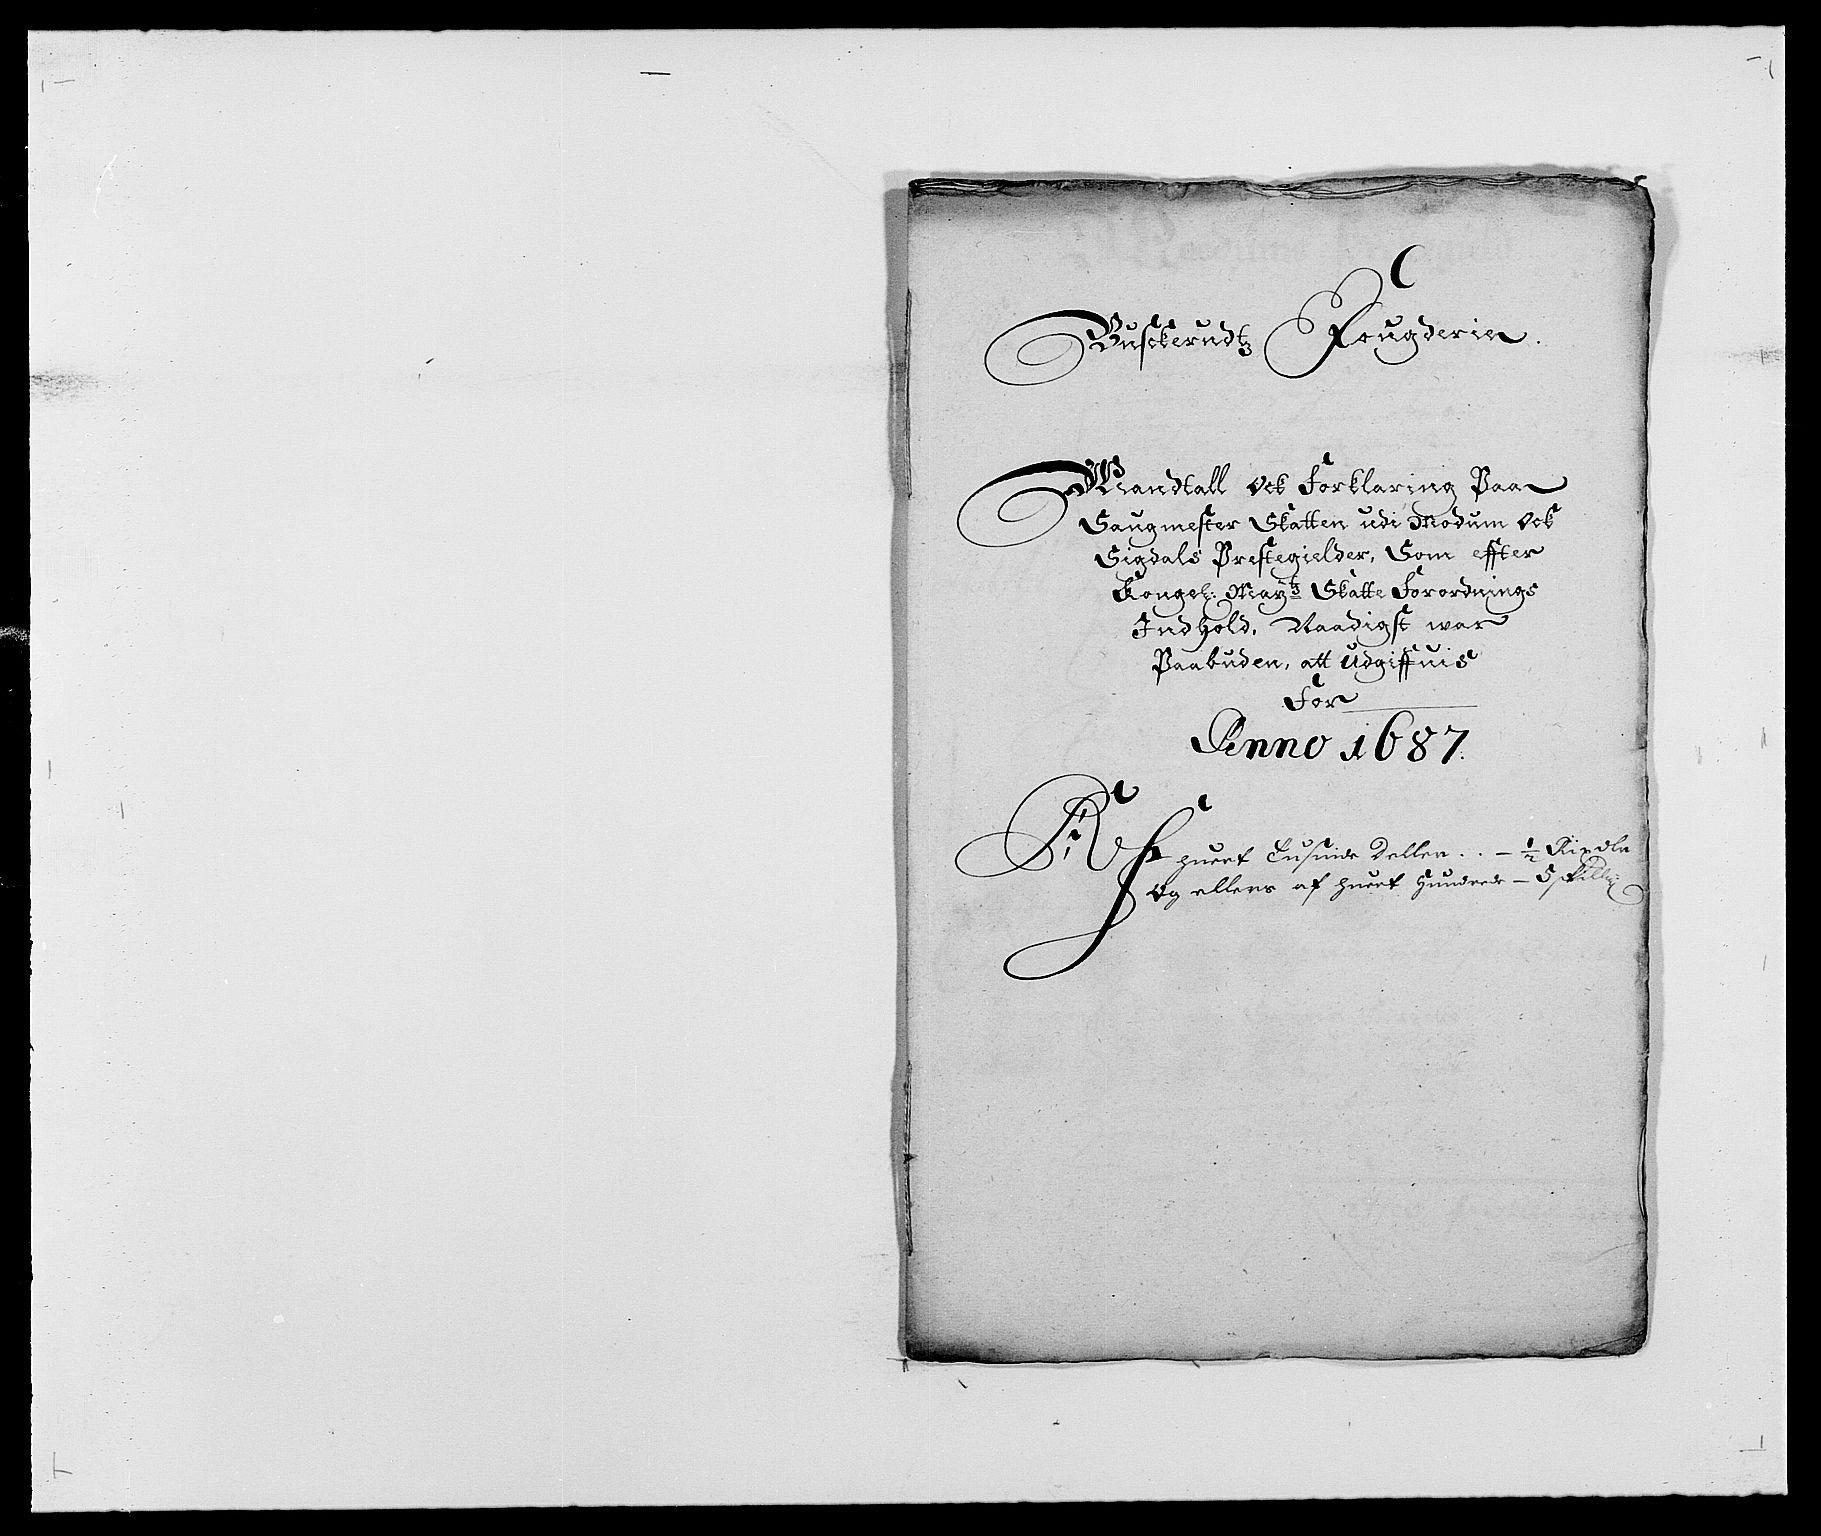 Buskerudtz Fougderie.
Mandtall Ock Forklaring Paa
Saugmester Skatten udi Modum Ock
Sigdals Prestegielder, Som effter
Kongel: Maytz Skatte Forordnings
Indhold, Naadigst war
Paabuden, att Udgiffuis
For
Anno 1687.
Af huert Tusinde Deller .. - ½ Rixdlr
Og ellers af huert Hundrede - 5 skilling